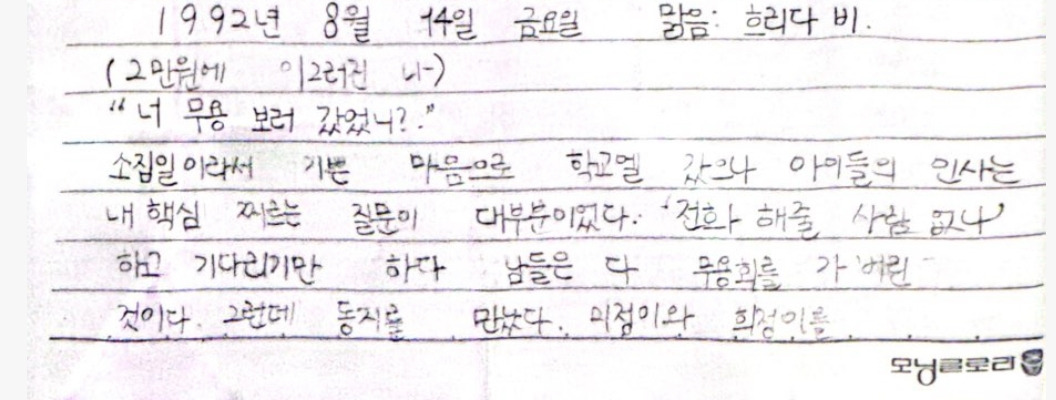 1992년 8월 14일 금요일 맑음: 흐리다 비.
(2만원에 이그러진 나)
"너 무용 보러 갔었니?."
소집일이라서 기쁜 마음으로 학교엘 갔으나 아이들의 인사는
내 핵심 찌르는 질문이 대부분이었다. '전화 해줄 사람 없나'
하고 기다리기만 하다 남들은 다 무용회를 가 버린
것이다. 그런데 동지를 만났다. 미정이와 희정이를
모닝글로리